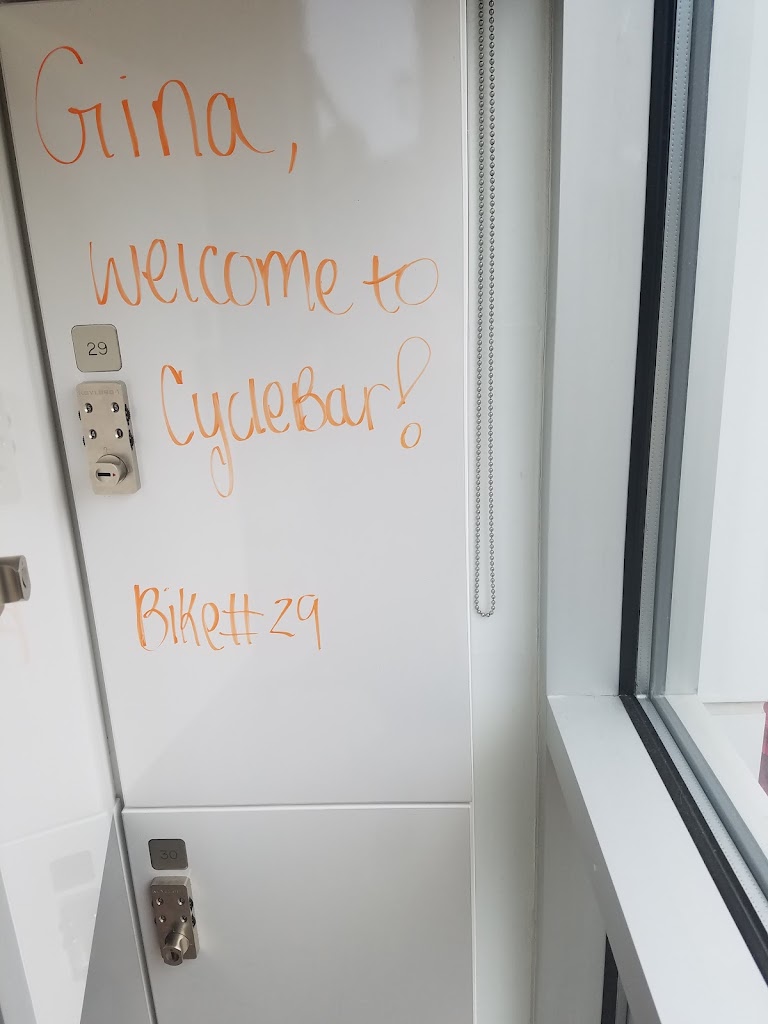 Gina,
Welcome to
29
CycleBar!
Bike# 29
30